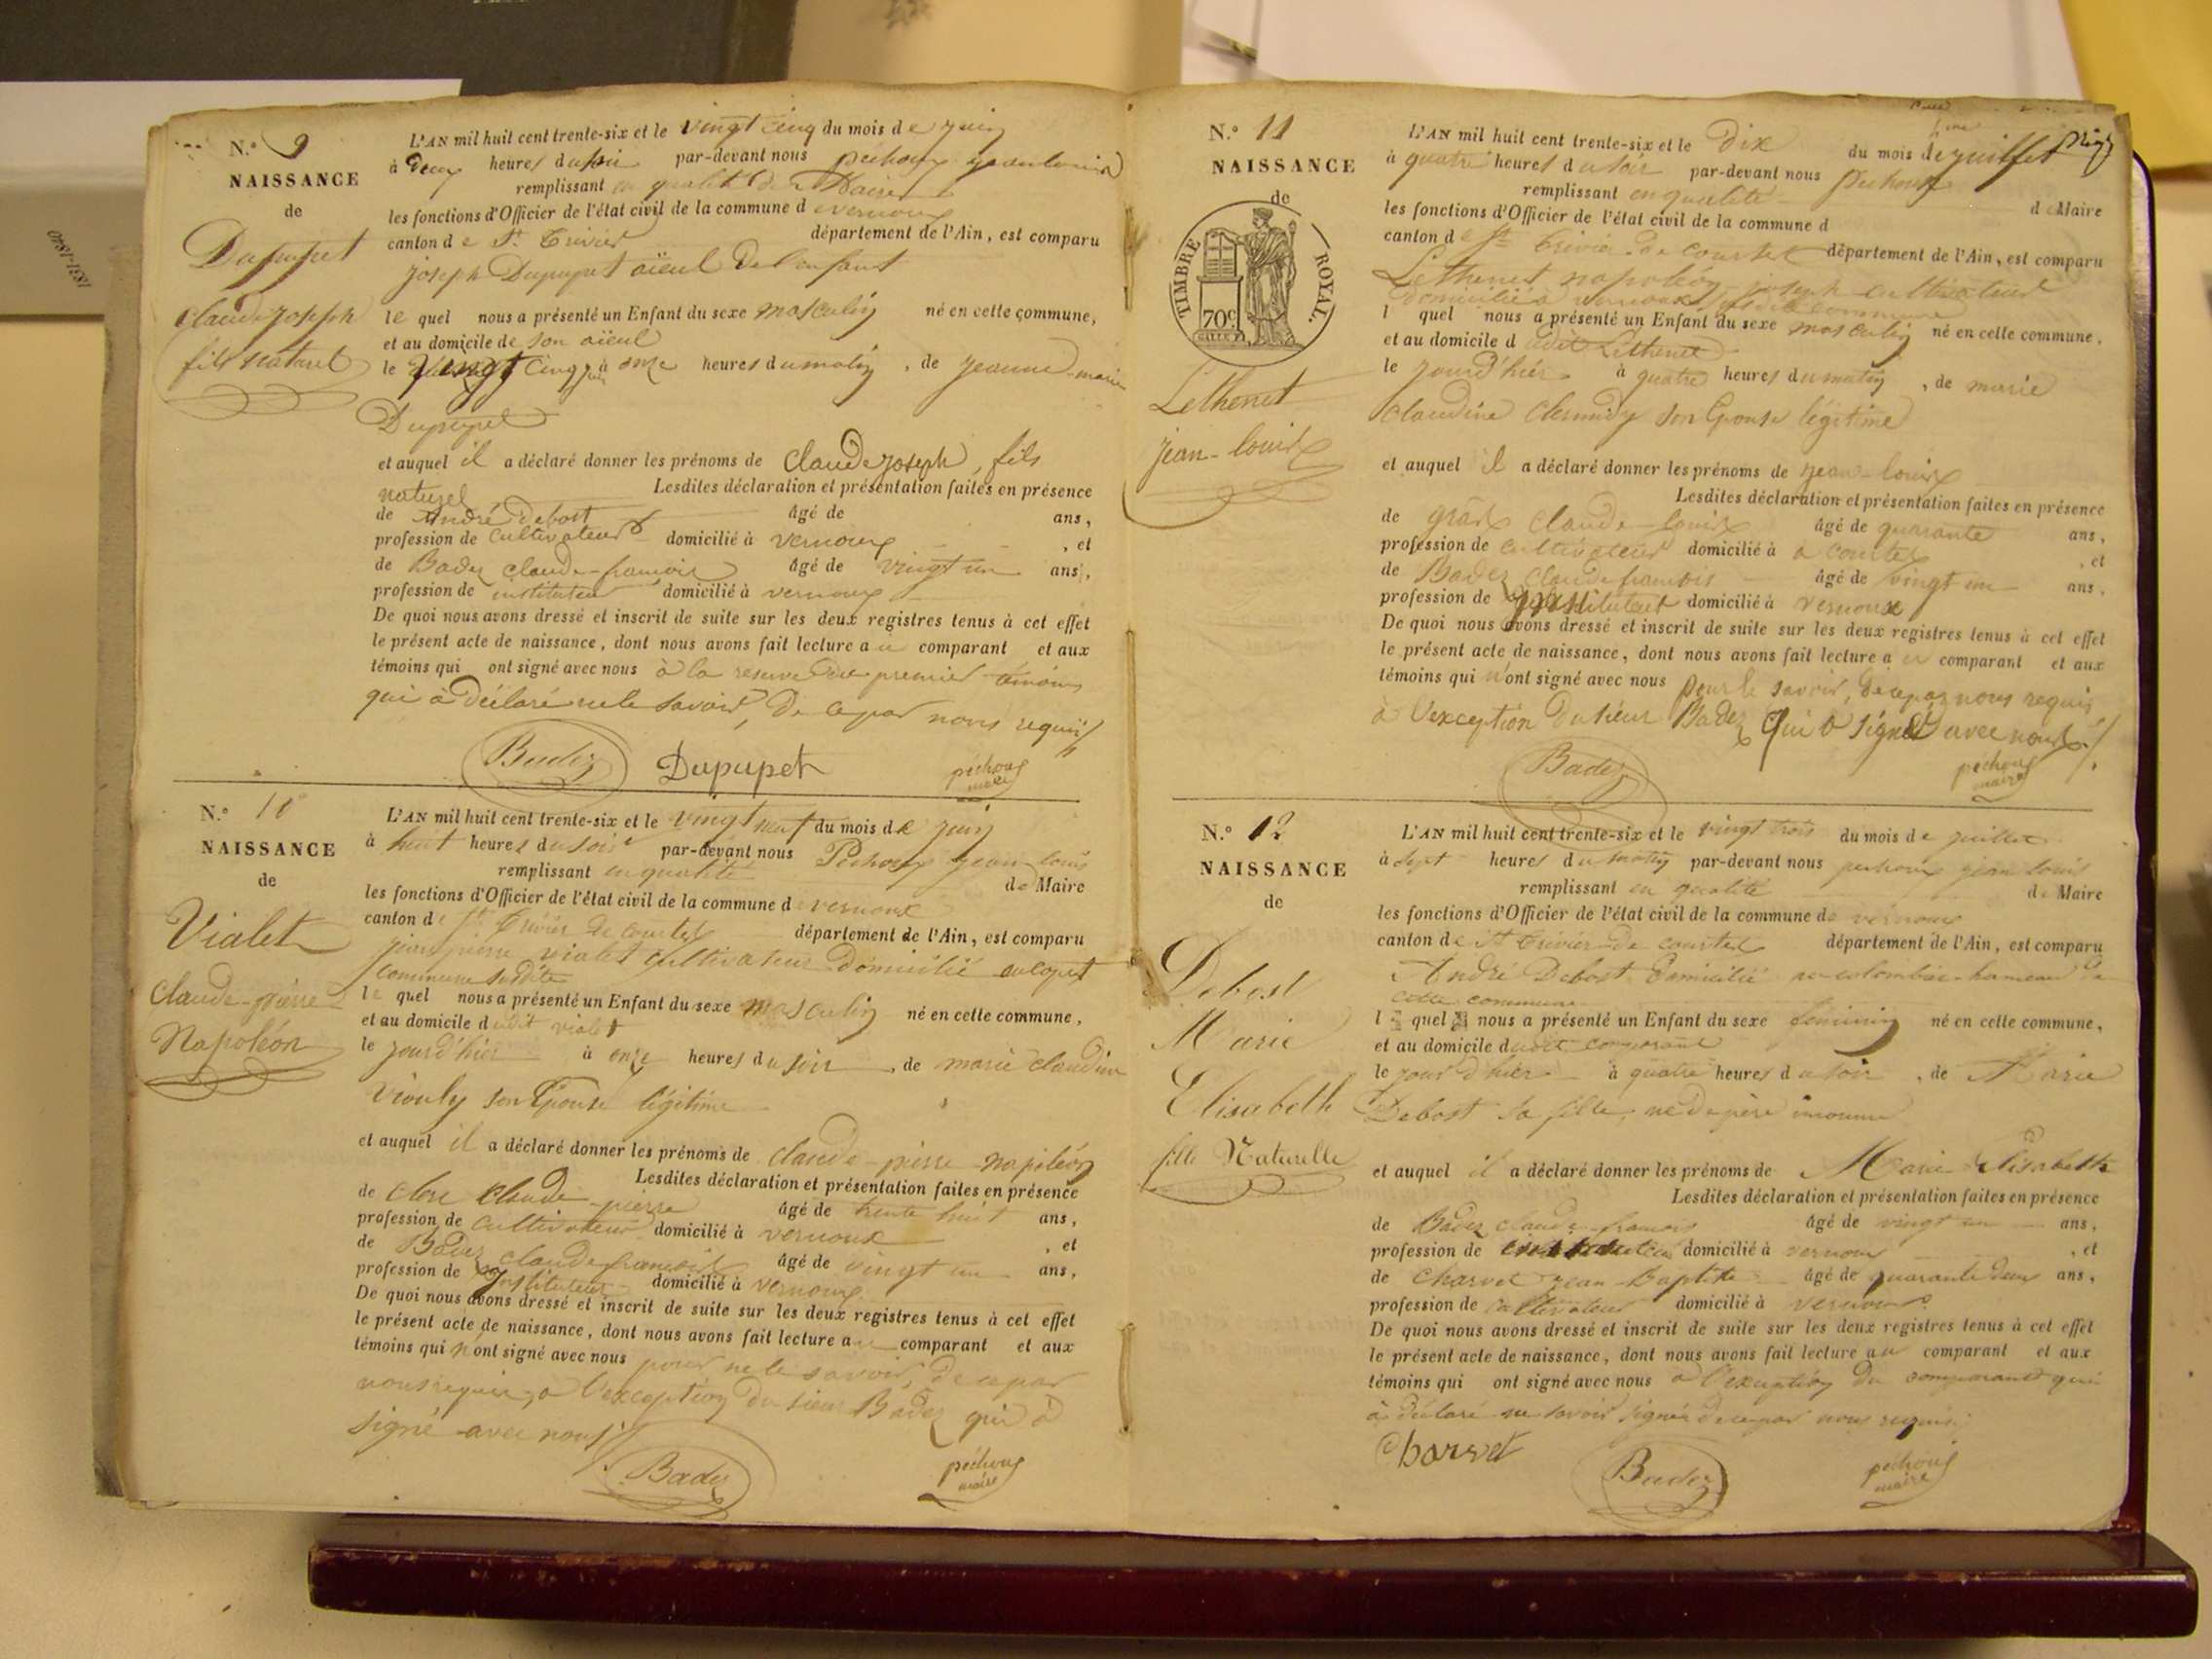 1831-1840
N.º 9
NAISSANCE
de
Dupupet
claude joseph
fils naturel
L'AN mil huit cent trente-six et le vingt cinq du mois de juin
à deux heures du soir par-devant nous péchoux jean louis
remplissant en qualité de Maire
les fonctions d'Officier de l'état civil de la commune d vernoux
canton de St. trivier département de l'Ain, est comparu
joseph Dupupet aïeul de l'enfant
le quel nous a présenté un Enfant du sexe masculin né en cette commune,
et au domicile de son aïeul
le vingt cinq juin à onze heures du matin, de jeanne-marie
Dupupet
et auquel il a déclaré donner les prénoms de claude joseph, fils
naturel Lesdites déclaration et présentation faites en présence
de André debost âgé de ans,
profession de cultivateur domicilié à vernoux, et
de Badez claude-francois âgé de vingt un ans,
profession de instituteur domicilié à vernoux
De quoi nous avons dressé et inscrit de suite sur les deux registres tenus à cet effet
le présent acte de naissance, dont nous avons fait lecture au comparant et aux
témoins qui ont signé avec nous à la reserve du premier témoin
qui a déclaré ne le savoir, de ce par nous requis
Badez Dupupet péchoux maire
N.º 10
NAISSANCE
de
Vialet
claude-pierre
Napoléon
L'AN mil huit cent trente-six et le vingt neuf du mois de juin
à huit heures du soir par-devant nous Péchoux jean louis
remplissant en qualité de Maire
les fonctions d'Officier de l'état civil de la commune de vernoux
canton de St trivier de courtes département de l'Ain, est comparu
jean pierre vialet cultivateur domicilié au copet
commune susdite
le quel nous a présenté un Enfant du sexe masculin né en cette commune,
et au domicile dudit vialet
le jour d'hier à onze heures du soir, de marie claudine
viouly son Epouse légitime
et auquel il a déclaré donner les prénoms de claude-pierre-napoléon
Lesdites déclaration et présentation faites en présence
de claude-pierre âgé de trente huit ans,
profession de cultivateur domicilié à vernoux, et
de Badez claude francois âgé de vingt un ans,
profession de instituteur domicilié à vernoux
De quoi nous avons dressé et inscrit de suite sur les deux registres tenus à cet effet
le présent acte de naissance, dont nous avons fait lecture au comparant et aux
témoins qui n'ont signé avec nous pour ne le savoir, de ce par
nous requis, à l'exception du sieur Badez qui a
signé avec nous
Badez péchoux maire
N.º 11
NAISSANCE
de
TIMBRE ROYAL.
70c
Lethenet
jean-louis
L'AN mil huit cent trente-six et le Dix du mois de juillet
à quatre heures du soir par-devant nous péchoux
remplissant en qualité de Maire
les fonctions d'Officier de l'état civil de la commune d
canton de St trivier de courtes département de l'Ain, est comparu
Lethenet napoléon joseph cultivateur
domicilié à vernoux susdite commune
l quel nous a présenté un Enfant du sexe masculin né en cette commune,
et au domicile dudit Lethenet
le jour d'hier à quatre heures du matin, de marie
claudine son Epouse légitime
et auquel il a déclaré donner les prénoms de jean-louis
Lesdites déclaration et présentation faites en présence
de claude-louis âgé de quarante ans,
profession de cultivateur domicilié à à courtes, et
de Badez claude francois âgé de vingt un ans,
profession de instituteur domicilié à vernoux
De quoi nous avons dressé et inscrit de suite sur les deux registres tenus à cet effet
le présent acte de naissance, dont nous avons fait lecture au comparant et aux
témoins qui n'ont signé avec nous pour le savoir, de ce par nous requis
à l'exception du sieur Badez qui a signé avec nous
Badez péchoux maire
N.º 12
NAISSANCE
de
Debost
Marie
Elisabeth
fille Naturelle
L'AN mil huit cent trente-six et le vingt trois du mois de juillet
à sept heures du matin par-devant nous péchoux jean louis
remplissant en qualité de Maire
les fonctions d'Officier de l'état civil de la commune de vernoux
canton de St trivier de courtes département de l'Ain, est comparu
André Debost domicilié hameau de
cette commune
l quel nous a présenté un Enfant du sexe féminin né en cette commune,
et au domicile dudit comparant
le jour d'hier à quatre heures du soir, de Marie
Debost sa fille, né de père inconnu
et auquel il a déclaré donner les prénoms de Marie Elisabeth
Lesdites déclaration et présentation faites en présence
de Badez claude-francois âgé de vingt un ans,
profession de instituteur domicilié à vernoux, et
de Charvet jean-Baptiste âgé de quarante deux ans,
profession de cultivateur domicilié à vernoux
De quoi nous avons dressé et inscrit de suite sur les deux registres tenus à cet effet
le présent acte de naissance, dont nous avons fait lecture au comparant et aux
témoins qui ont signé avec nous à l'exception du comparant qui
a déclaré ne savoir signer de ce par nous requis
Charvet Badez péchoux maire